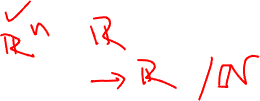 ✓
ℝⁿ ℝ
→ ℝ /ℕ